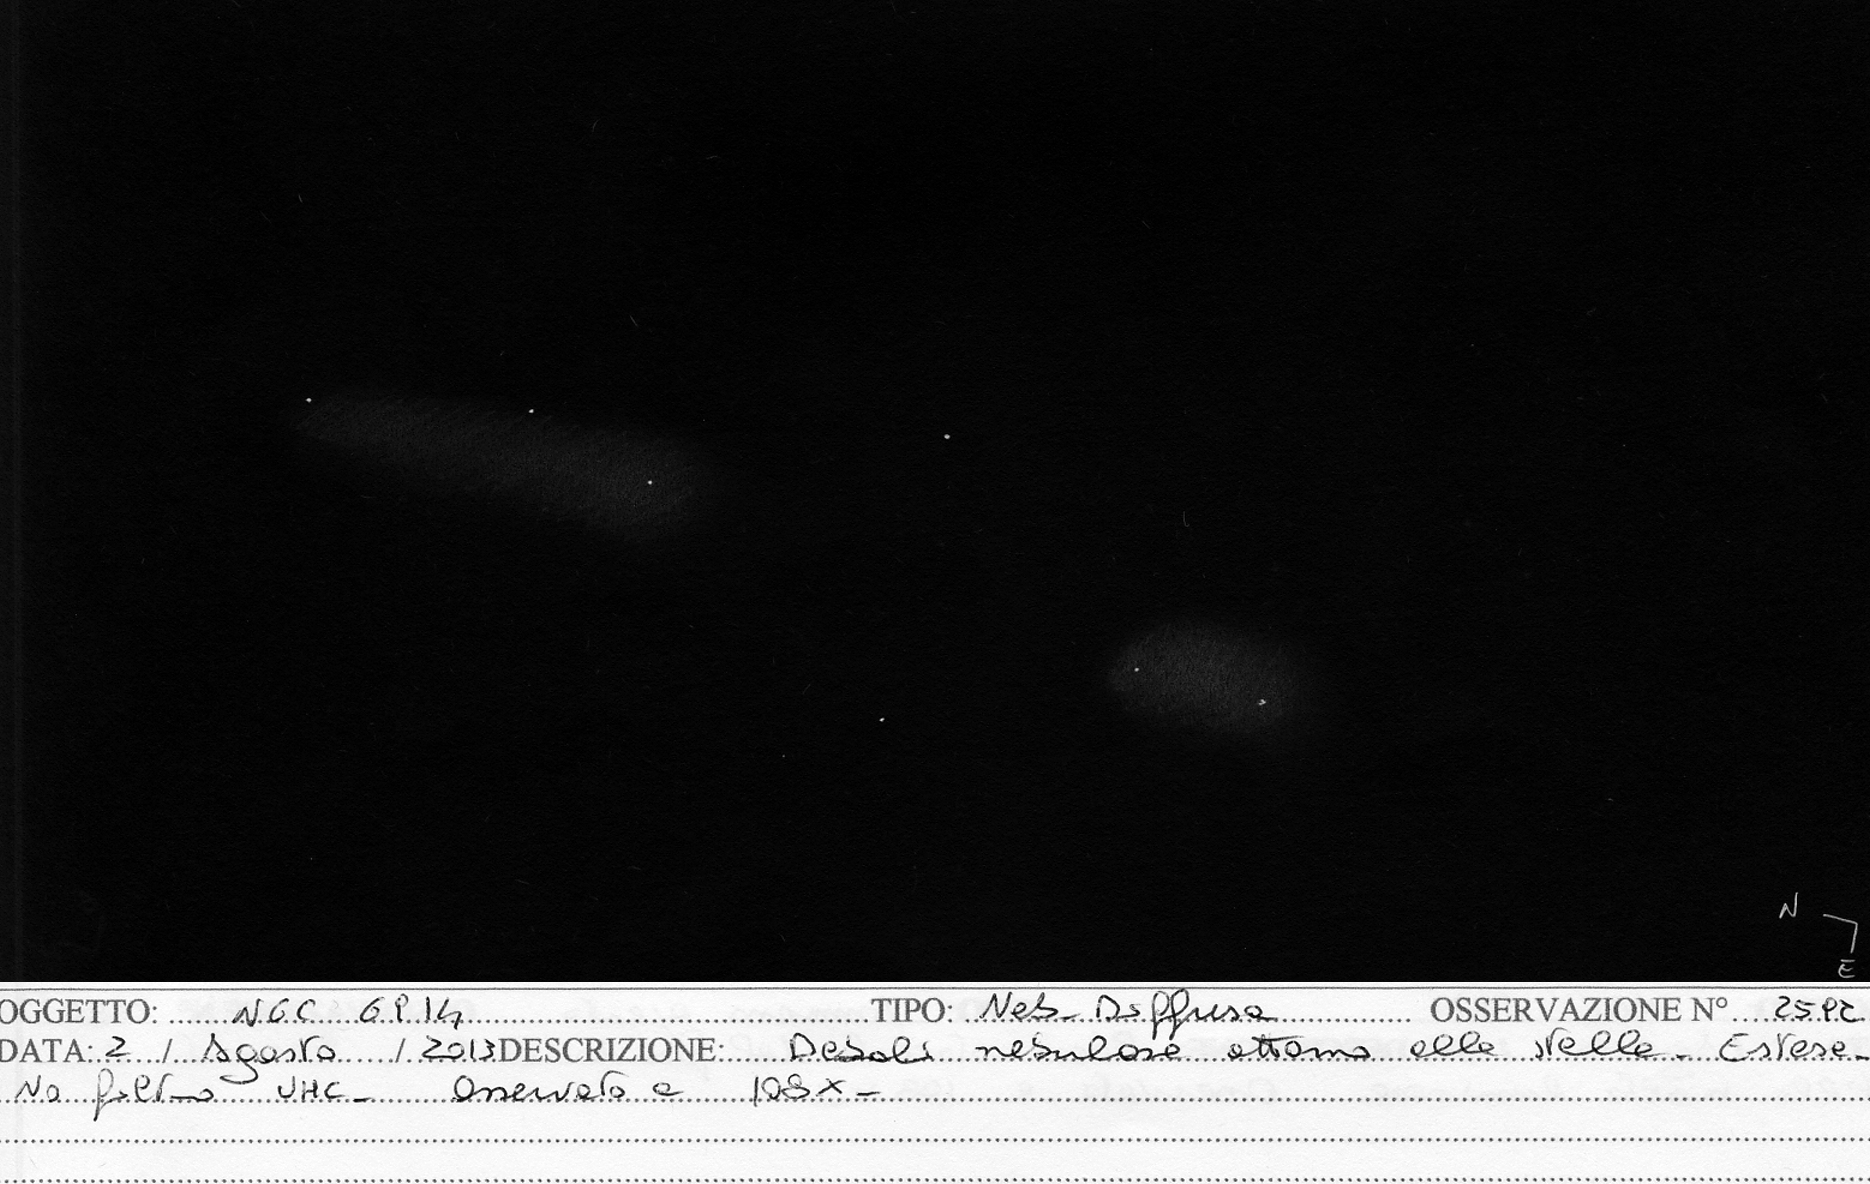 N
E
OGGETTO: NGC 6914 TIPO: Neb. Diffusa OSSERVAZIONE N° 2592
DATA: 2 / Agosto / 2013 DESCRIZIONE: Deboli nebulose attorno alle stelle. Estese.
No filtro UHC. Osservato a 108x.